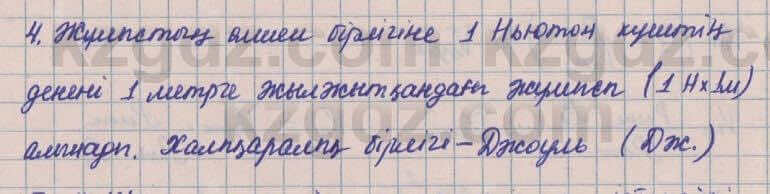 4. Жұмыстың өлшем бірлігіне 1 Ньютон күштің
денені 1 метрге жылжытқандағы жұмысы (1 Н×1м)
алынады. Халықаралық бірлігі - Джоуль (Дж.)